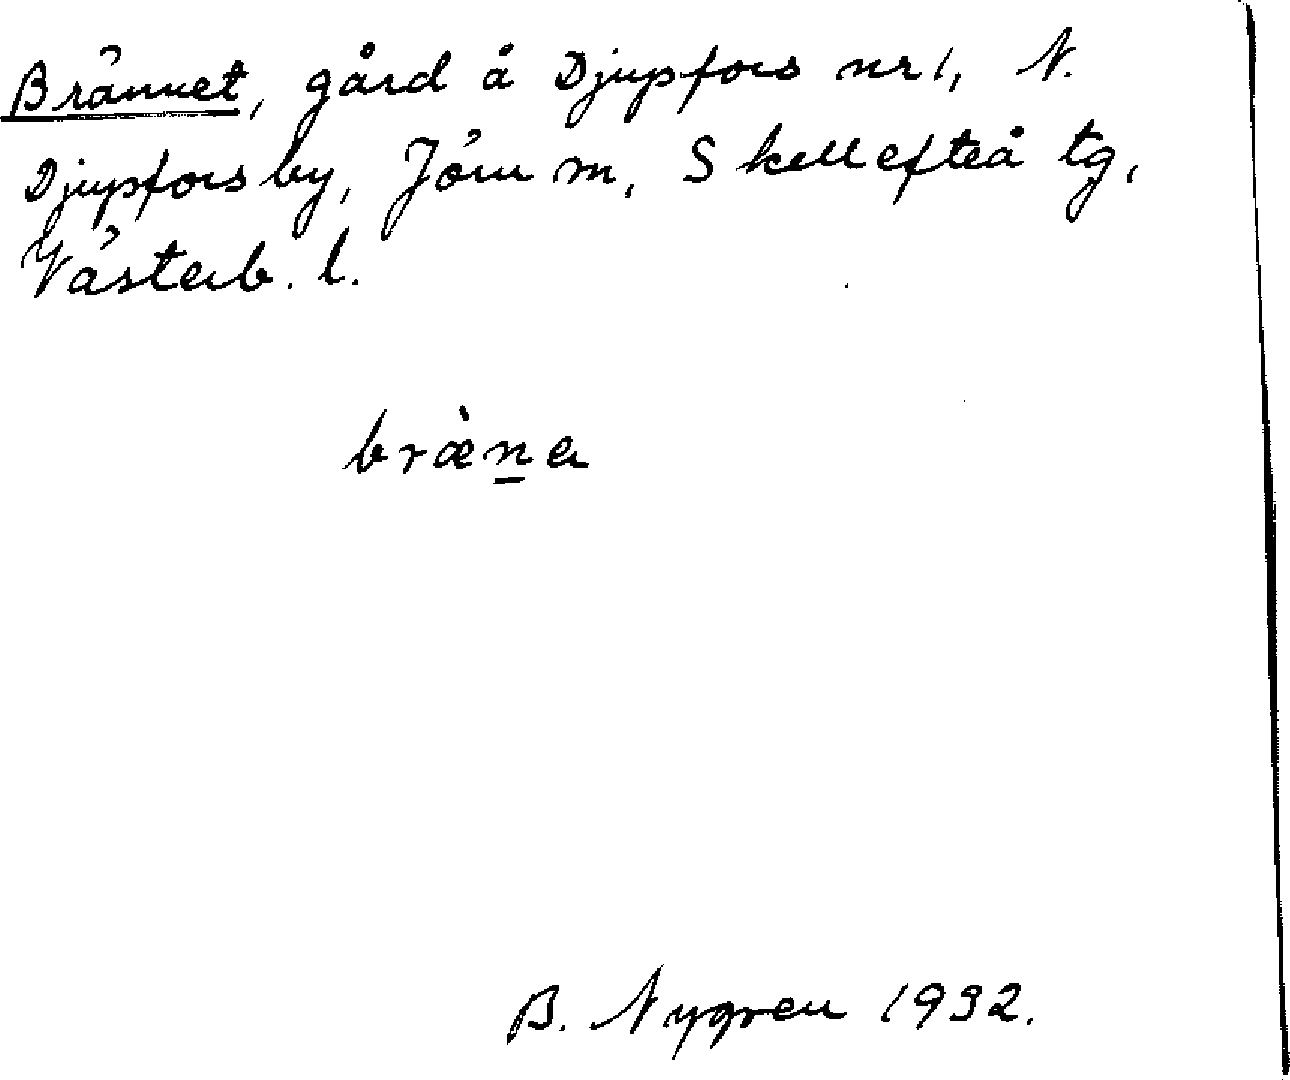 Brännet, gård å Djupfors nr 1, N.
Djupfors by, Jörn sn, Skellefteå tg,
Västerb. l.
bræ̀n̲a
B. Nygren 1932.